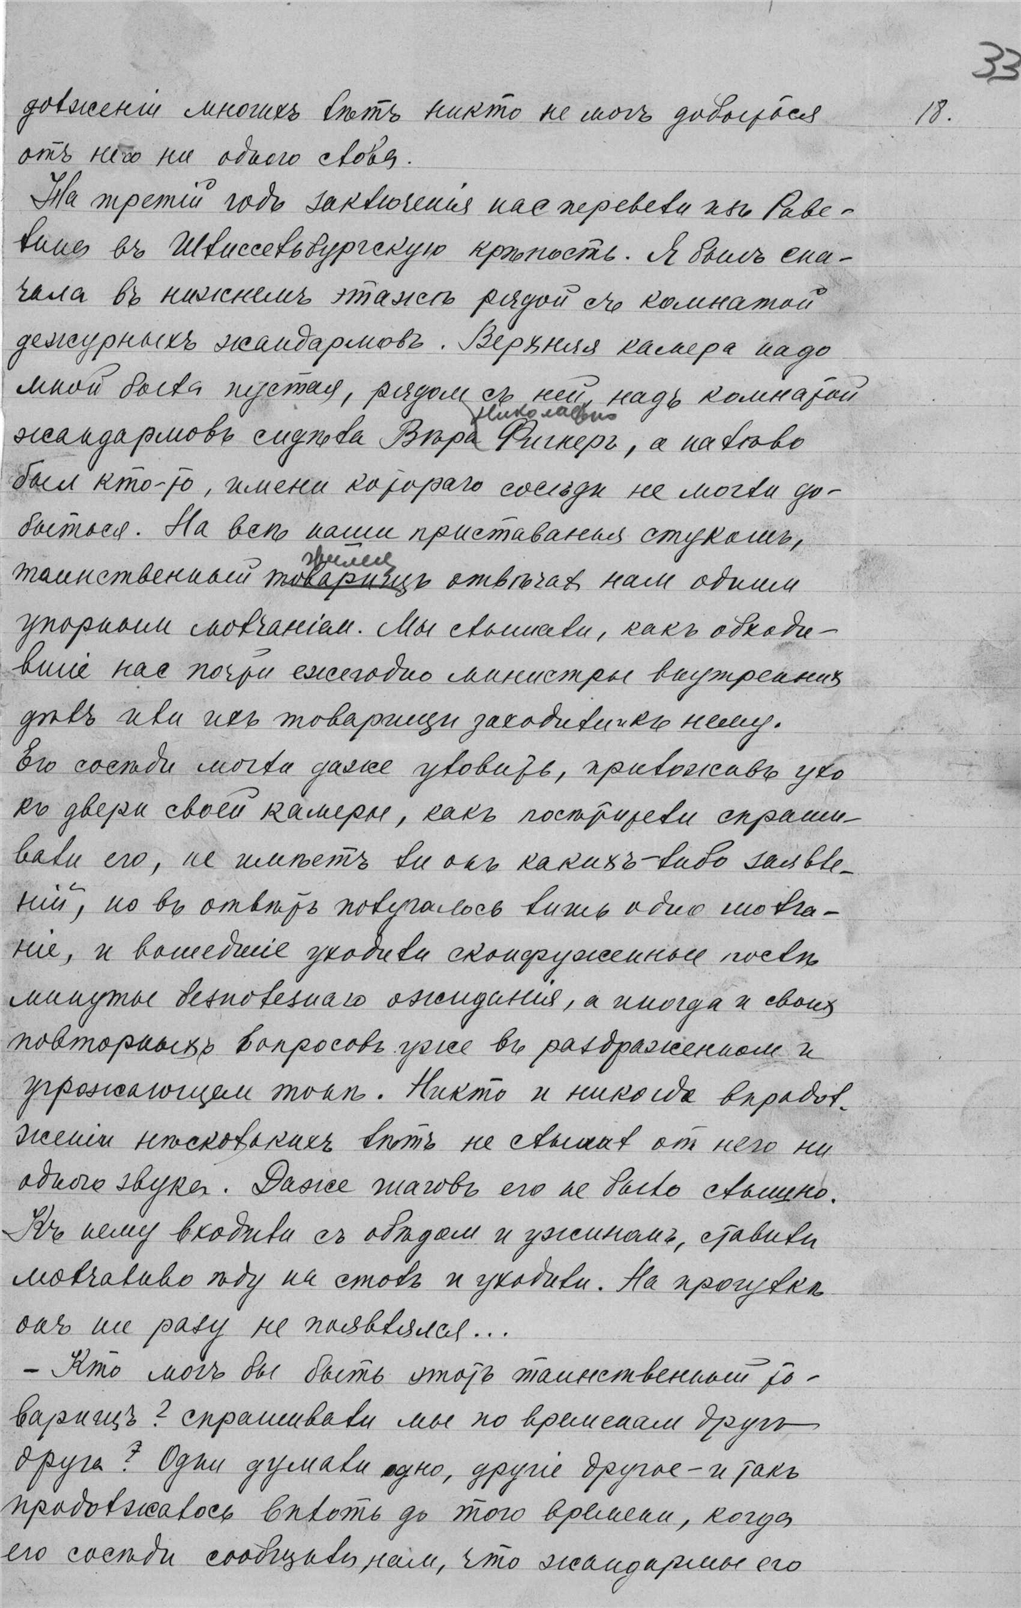 33
18.
долженіи многихъ лѣтъ никто не могъ добиться
отъ него ни одного слова.
На третій годъ заключенія нас перевели изъ Раве-
лина въ Шлиссельбургскую крѣпость. Я былъ сна-
чала въ нижнемъ этажѣ рядой съ комнатой
дежурныхъ жандармовъ. Верхняя камера надо
мной была пустая, рядом съ ней, надъ комнатой
Николаевна
жандармовъ сидѣла Вѣра Фигнеръ, а налѣво
был кто-то, имени котораго сосѣди не могли до-
биться. На всѣ наши приставанья стукомъ,
таинственный товарищъ отвѣчал нам одним
упорным молчаніем. Мы слышали, какъ обходи-
вшіе нас почти ежегодно министры внутренних
дѣлъ или ихъ товарищи заходили къ нему.
Его сосѣди могли даже уловить, приложивъ ухо
къ двери своей камеры, какъ посѣтители спраши-
вали его, не имѣетъ ли онъ какихъ-либо заявле-
ній, но въ отвѣтъ получалось лишь одно молча-
ніе, и вошедшіе уходили сконфуженные послѣ
минуты безполезнаго ожиданія, а иногда и своих
повторныхъ вопросовъ уже въ раздраженном и
угрожающем тонѣ. Никто и никогда впродол-
женіи нѣсколькихъ лѣтъ не слышал от него ни
одного звука. Даже шаговъ его не было слышно.
Къ нему входили съ обѣдом и ужиномъ, ставили
молчаливо ѣду на столъ и уходили. На прогулкѣ
онъ ни разу не появлялся...
– Кто могъ бы быть этотъ таинственный то-
варищъ? спрашивали мы по временам другъ
друга? Одни думали одно, другіе другое – и такъ
продолжалось вплоть до того времени, когда
его сосѣди сообщили нам, что жандармы его